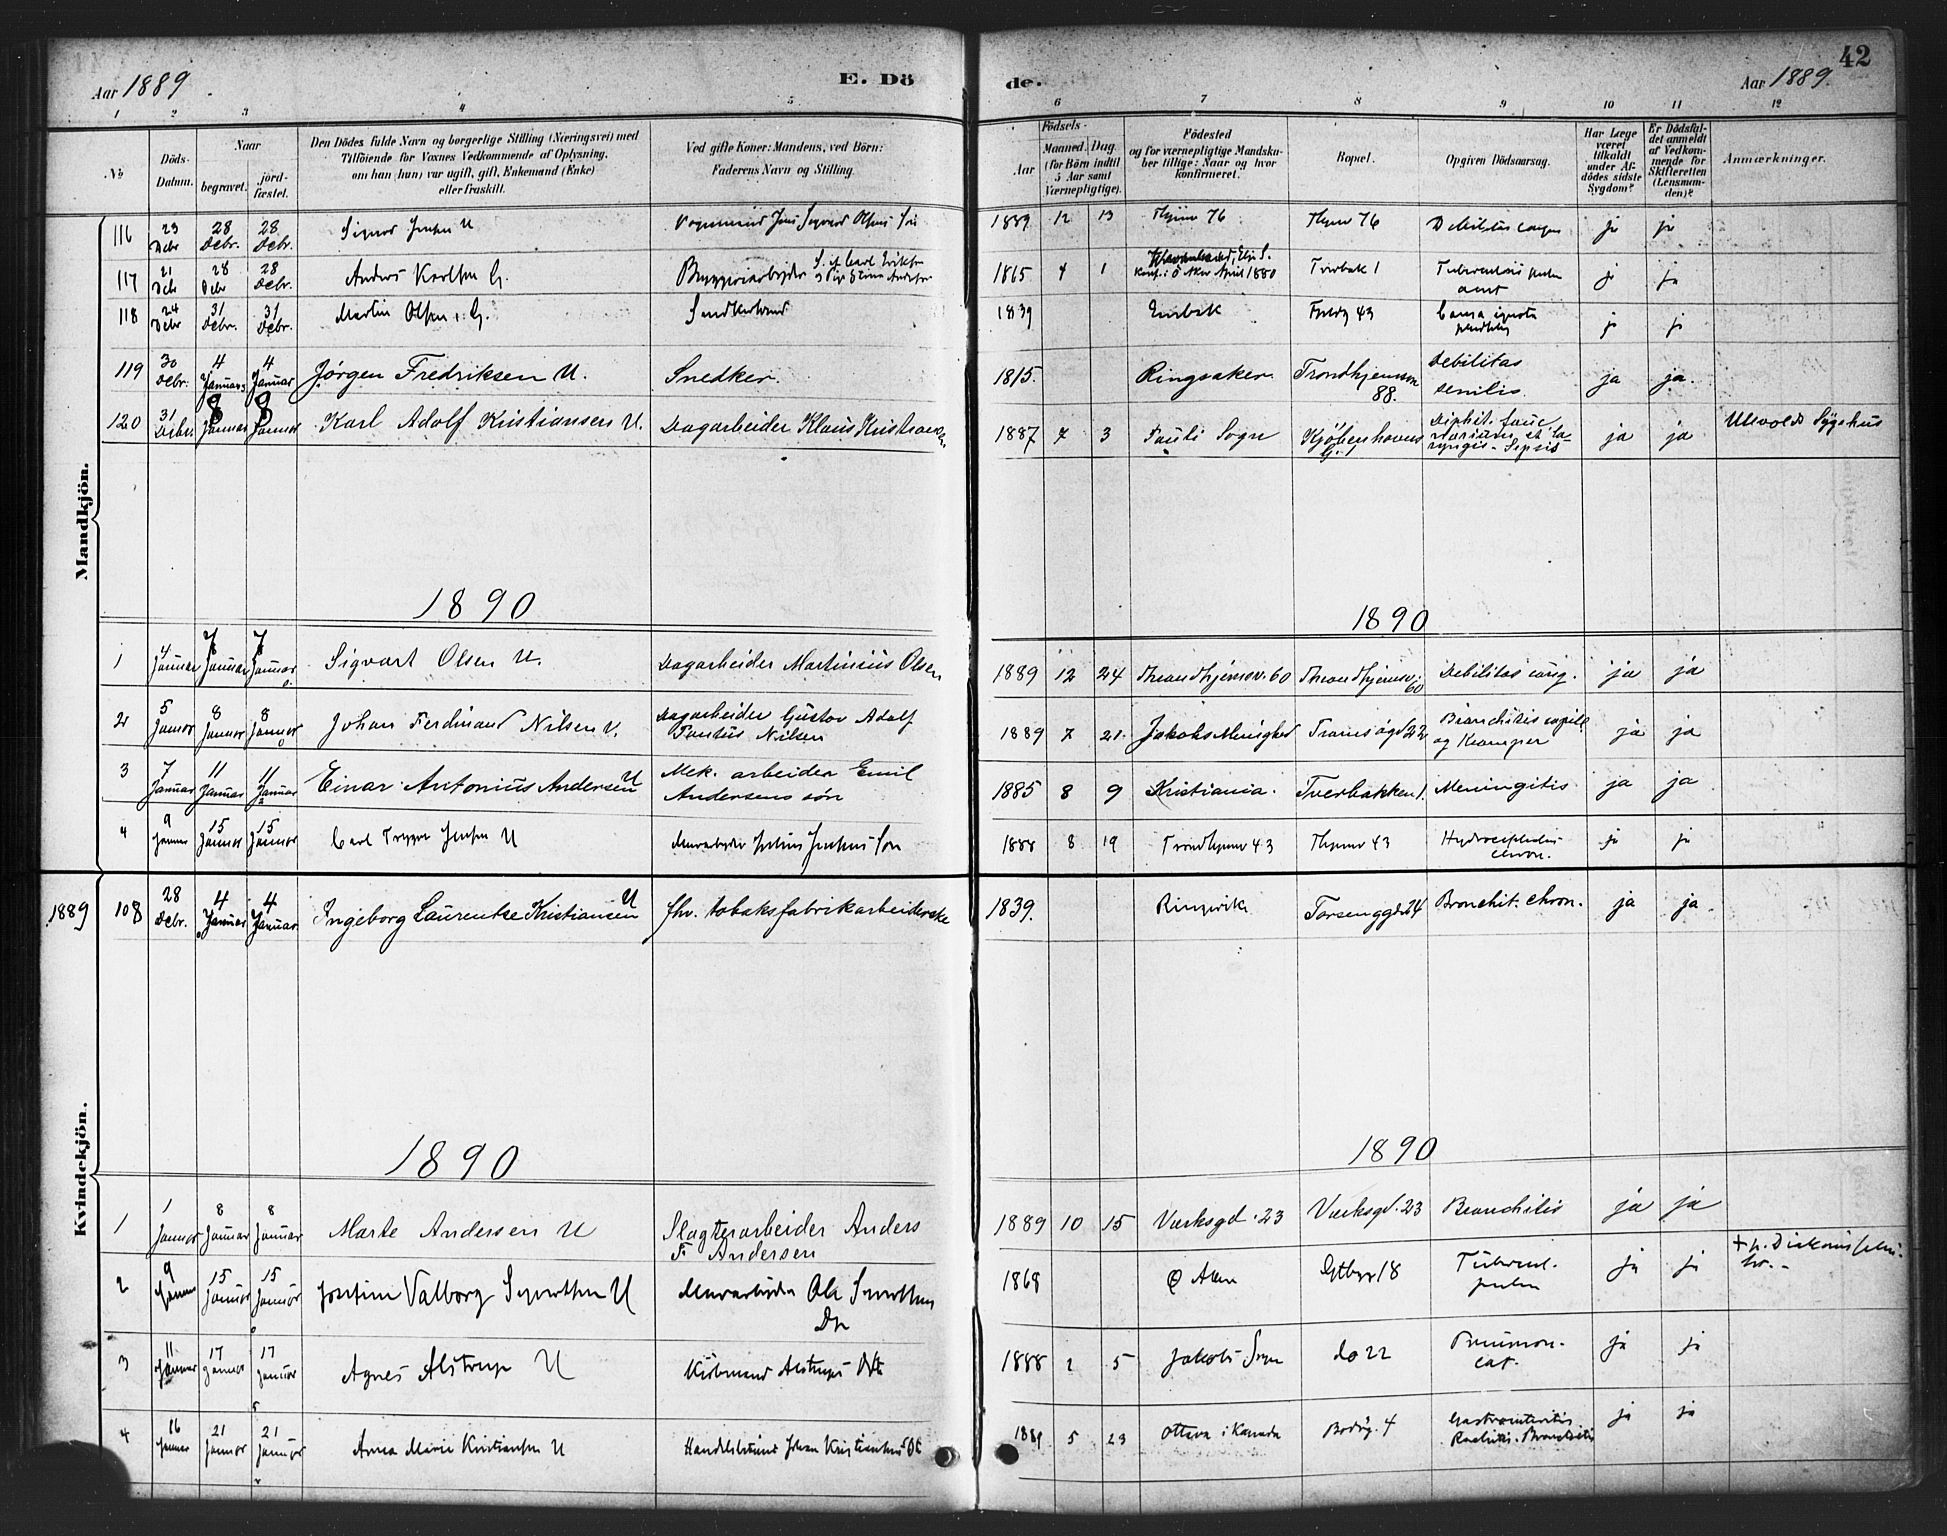 Aar 1889
E. Dö
de.
Aar 1889.
42
1 2 3 4 5 6 7 8 9 10 11 12
№
Döds-Datum.
Naar
begravet.
jord-fæstet.
Den Dödes fulde Navn og borgerlige Stilling (Næringsvei) med
Tilföiende for Voxnes Vedkommende af Oplysning,
om han (hun) var ugift, gift, Enkemand (Enke)
eller fraskilt.
Ved gifte Koner: Mandens, ved Börn:
Faderens Navn og Stilling.
Födsels-
Aar
Maaned. Dag.
(for Börn indtil
5 Aar samt
Værnepligtige).
Födested
og for værnepligtige Mandsku-
ber tillige: Naar og hvor
konfirmeret.
Bopæl.
Opgiven Dödsaarsag.
Har Læge
været
tilkaldt
under Af-
dödes sidste
Sygdom?
Er Dödsfal-
det anmeldt
af Vedkom-
mende for
Skifteretten
(Lensman-
den)?
Anmærkninger.
Mandkjön.
116 23 Debr 28 Debr. 28 Debr. Jensen U Olsens Sön 1889 12 13 76 76 Debilitas ja ja
117 21 Debr 28 Debr 28 Debr. Anders Karlsen G. Bryggeriarbejder S. af Carl 1865 4 1 Konf. i Ö Aker April 1880 Tverbak 1 ja ja
118 24 Debr 31 Debr. 31 Debr. Martin Olsen G. 1839 43 Causa ignota ja ja
119 30 Debr. 4 Januar 4 Januar Jørgen Fredriksen U. Snedker. 1815. Ringsaker. 88. Debilitas senilis. ja ja.
120 31 Debr. 8 Januar 8 Januar Karl Adolf Kristiansen U. Dagarbeider Klaus Kristiansen 1887 7 3 Sogn ja ja Ullevolds Sygehus
1890
1890
1 4 Januar 7 Januar 7 Januar Sigvart Olsen U. Dagarbeider Martinius Olsen 1889 12 24 Throndhjemsv. 60 Throndhjemsv. 60 Debilitas cong. ja ja
2 5 Januar 8 Januar 8 Januar Johan Ferdinand Nilsen U. Dagarbeider Gustav Adolf Pontus Nilsen 1889 7 21. Jakobs Menighed Tromsøgd 22 Bronchitis capill. og Kramper ja ja
3 7 Januar 11 Januar 11 Januar Einar Antonius Andersen U Mek. arbeider Emil Andersens søn 1885 8 9 Kristiania. Tverbakken 1. Meningitis ja ja
4 9 Januar 15 Januar 15 Januar Carl Trygve Jensen U Murarbejder Julius Jensens Sön 1888 8 19 43 43 Hydrocephalus chron. ja ja
1889 108 28 Debr. 4 Januar 4 Januar Ingeborg Laurentze Kristiansen U fhv. tobaksfabrikarbeiderske 1839. Ringerike Torsenggd. 24 Bronchit. chron. ja ja.
Kvindekjön.
1890
1890
1 1 Januar 8 Januar 8 Januar Marte Andersen U Slagterarbeider Anders F. Andersen 1889 10 15 Værksgd. 23 Værksgd. 23 Bronchitis ja ja
2 9 Januar 15 Januar 15 Januar Josefine Valborg Syvertsen U Murarbejder Ole Syvertsens Dtr 1868 Ø Aker 18 Tubercul. pulm ja ja
3 11 Januar 17 Januar 17 Januar Agnes Alstrup U Kjöbmand Alstrups Dtr 1888 2 5 Jakobs Sogn do 22 Pneumon. cat. ja ja
4 16 Januar 21 Januar 21 Januar Anna Marie Kristiansen U Johan Kristiansens Dt 1889 5 23 Ottava i Kanada Bodög. 4 Gastroenteritis Rachitis. Bronchitis ja ja